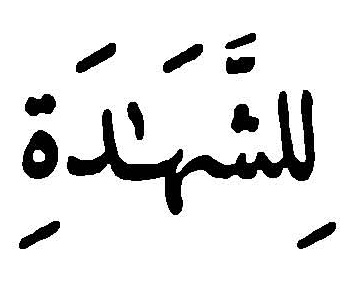 لِلشَّهَـٰدَةِ